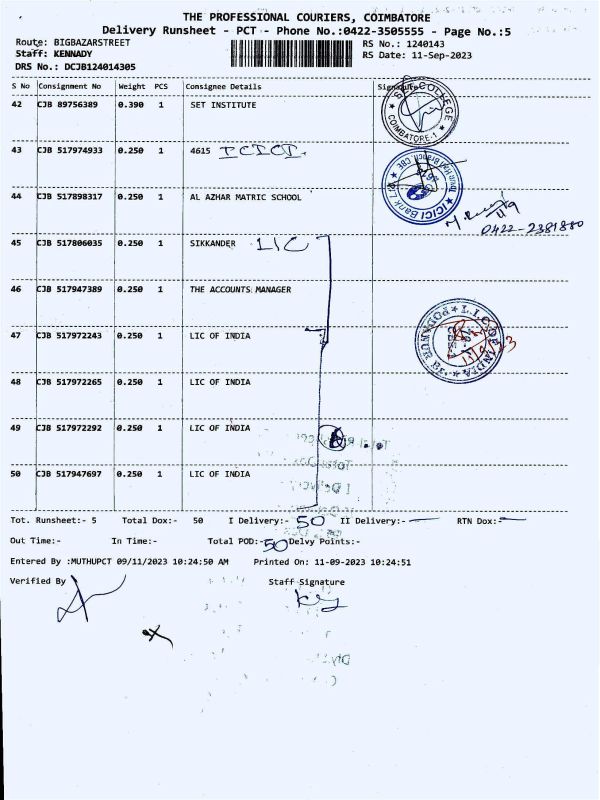 THE PROFESSIONAL COURIERS, COIMBATORE
Delivery Runsheet - PCT - Phone No.:0422-3505555 - Page No.:5
Route: BIGBAZARSTREET RS No.: 1240143
Staff: KENNADY RS Date: 11-Sep-2023
DRS No.: DCJB124014305
S No Consignment No Weight PCS Consignee Details Signature
42 CJB 89756389 0.390 1 SET INSTITUTE
COLLEGE COIMBATORE-1
43 CJB 517974933 0.250 1 4615 ICICI.
ICICI Bank
44 CJB 517898317 0.250 1 AL AZHAR MATRIC SCHOOL
11/9
0422-2381880
45 CJB 517806035 0.250 1 SIKKANDER LIC
46 CJB 517947389 0.250 1 THE ACCOUNTS MANAGER
L.I.C. OF INDIA
11/9/23
47 CJB 517972243 0.250 1 LIC OF INDIA
48 CJB 517972265 0.250 1 LIC OF INDIA
49 CJB 517972292 0.250 1 LIC OF INDIA
50 CJB 517947697 0.250 1 LIC OF INDIA
Tot. Runsheet:- 5 Total Dox:- 50 I Delivery:- 50 II Delivery:- — RTN Dox:- —
Out Time:- In Time:- Total POD:- 50 Delvy Points:-
Entered By :MUTHUPCT 09/11/2023 10:24:50 AM Printed On: 11-09-2023 10:24:51
Verified By Staff Signature